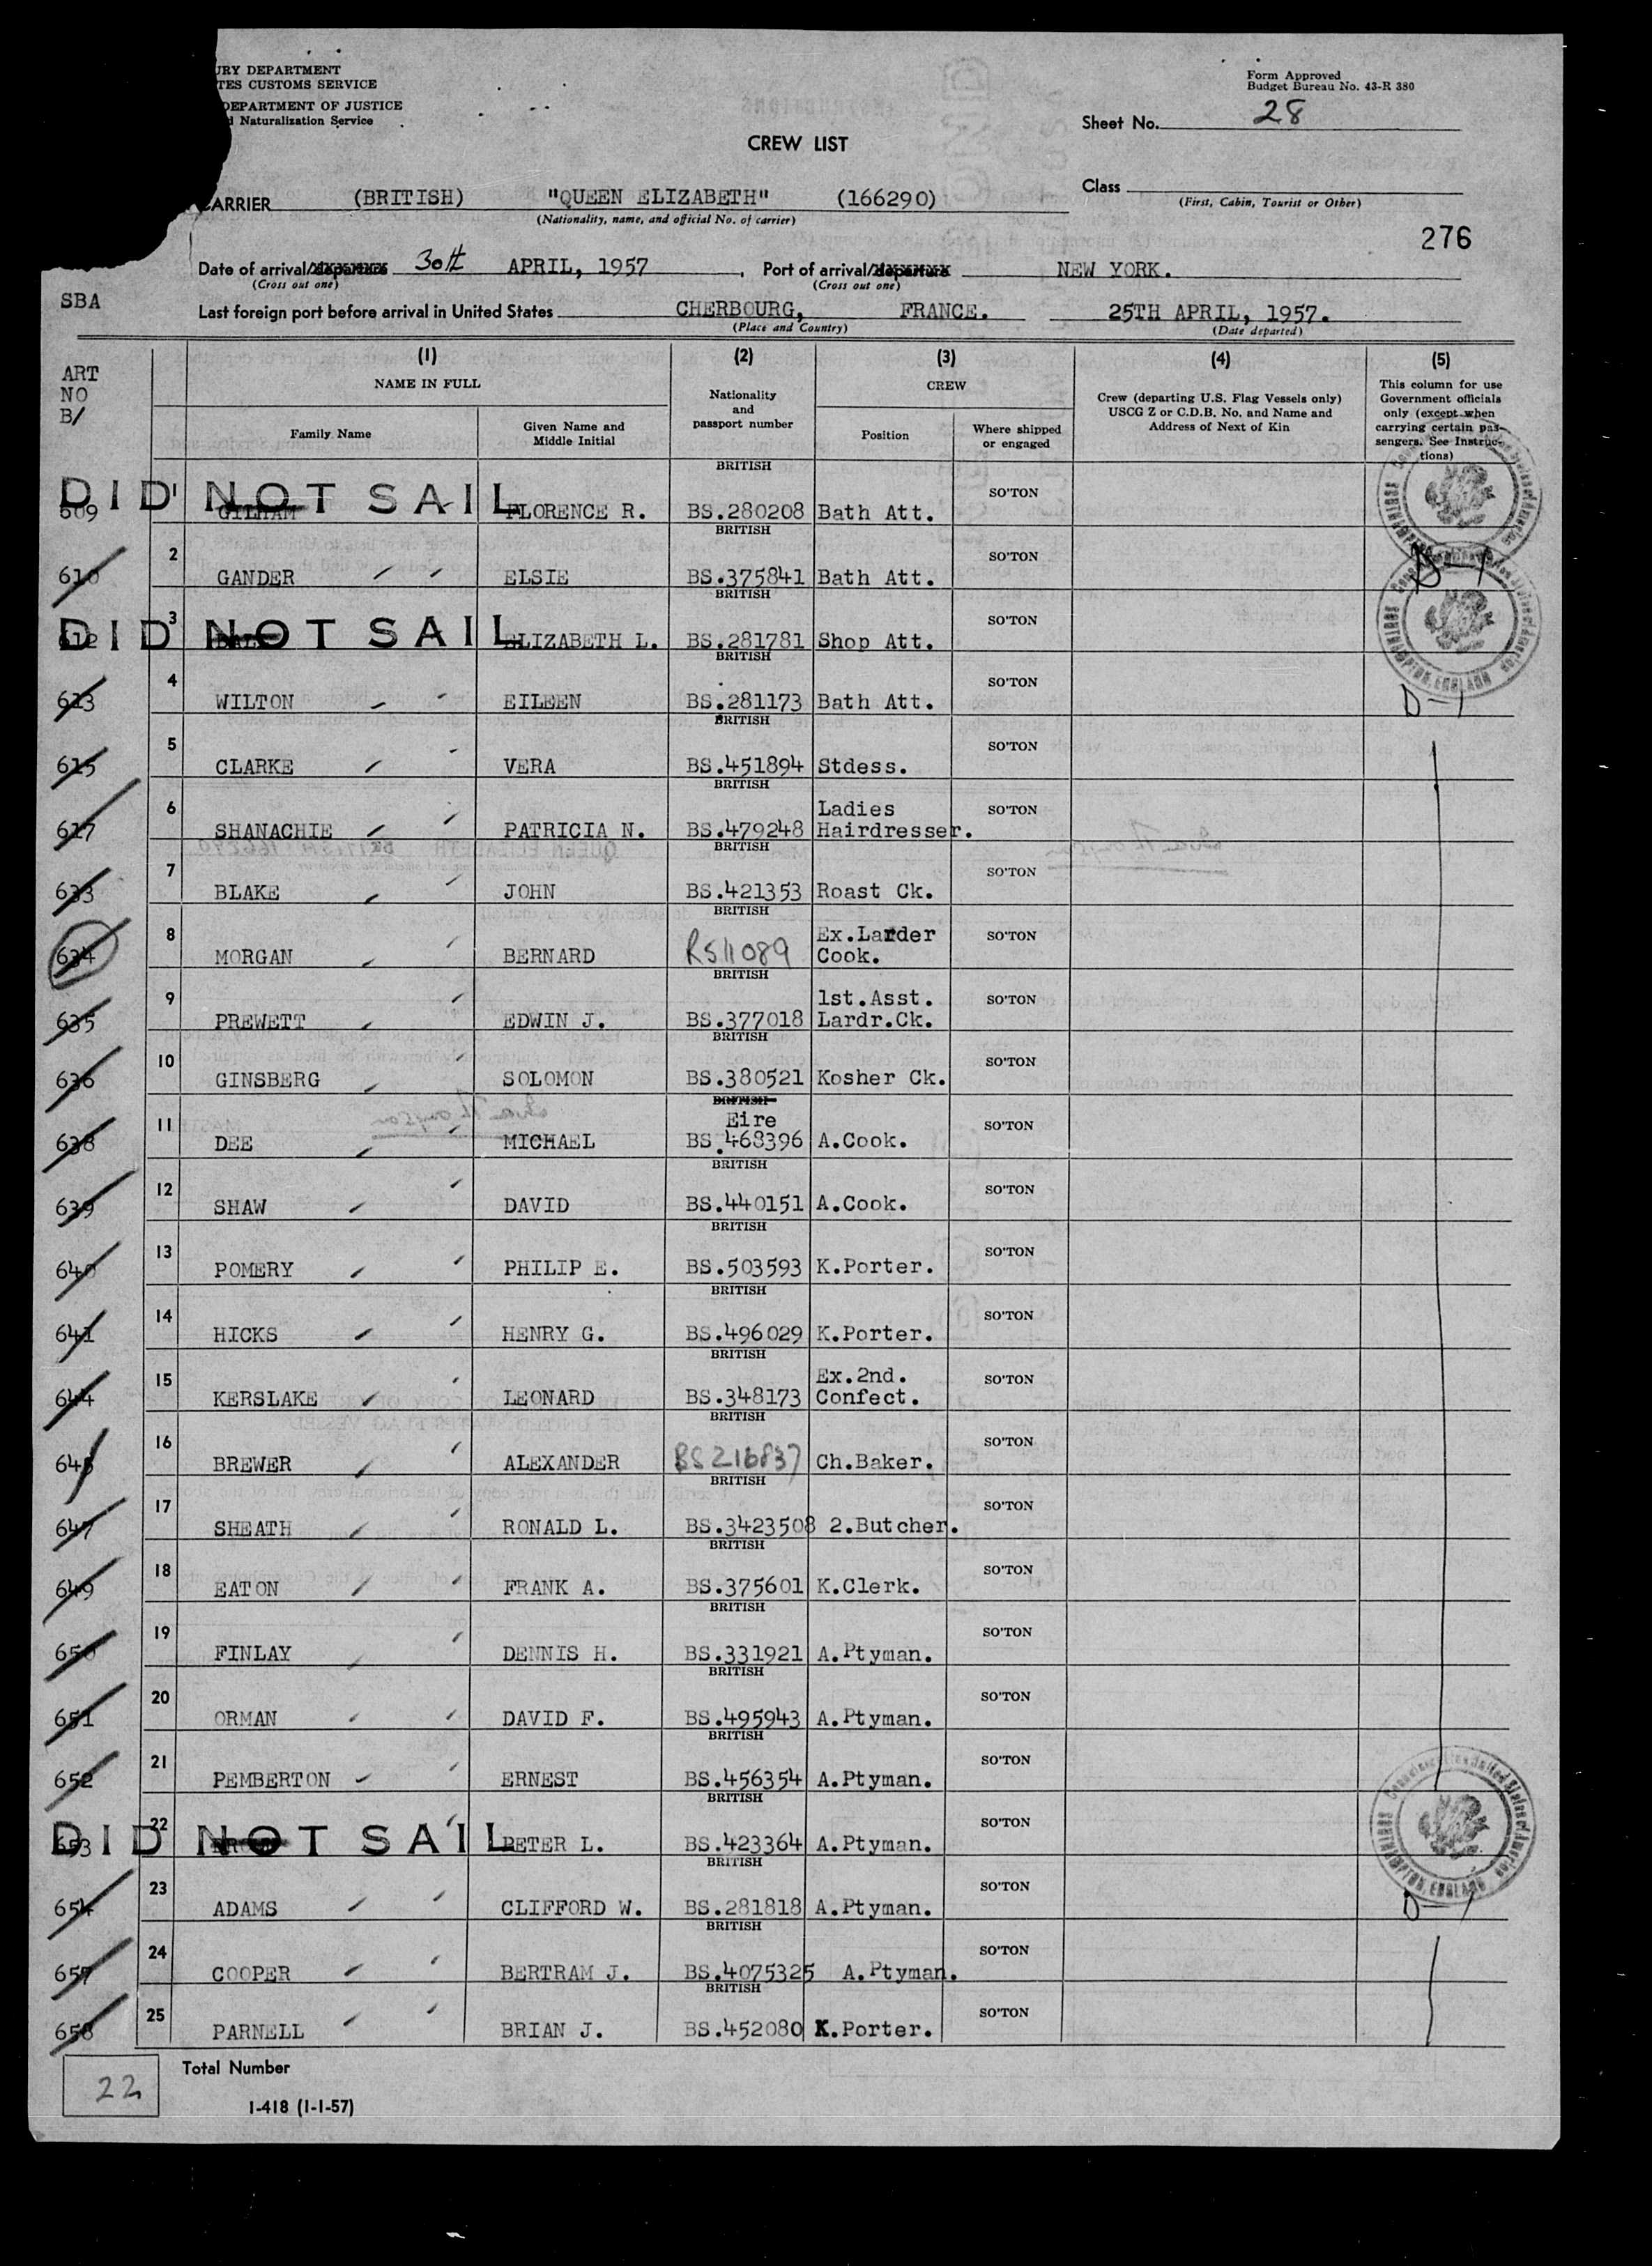 URY DEPARTMENT
TES CUSTOMS SERVICE
DEPARTMENT OF JUSTICE
d Naturalization Service
Form Approved
Budget Bureau No. 43-R 380
Sheet No. 28
CREW LIST
Class
(First, Cabin, Tourist or Other)
CARRIER (BRITISH) "QUEEN ELIZABETH" (166290)
(Nationality, name, and official No. of carrier)
276
Date of arrival/departure 30th APRIL, 1957 , Port of arrival/departure NEW YORK.
(Cross out one) (Cross out one)
SBA
Last foreign port before arrival in United States CHERBOURG, FRANCE. 25TH APRIL, 1957.
(Place and Country) (Date departed)
ART
NO
B/
(1) (2) (3) (4) (5)
NAME IN FULL
Family Name
Given Name and
Middle Initial
Nationality
and
passport number
CREW
Position
Where shipped
or engaged
Crew (departing U.S. Flag Vessels only)
USCG Z or C.D.B. No. and Name and
Address of Next of Kin
This column for use
Government officials
only (except when
carrying certain pas-
sengers. See Instruc-
tions)
BRITISH
DID NOT SAIL
609 1 GILHAM FLORENCE R. BS.280208 Bath Att. SO'TON
BRITISH
610 2 GANDER ELSIE BS.375841 Bath Att. SO'TON
BRITISH
DID NOT SAIL
612 3 ELIZABETH L. BS.281781 Shop Att. SO'TON
BRITISH
613 4 WILTON EILEEN BS.281173 Bath Att. SO'TON D-1
BRITISH
615 5 CLARKE VERA BS.451894 Stdess. SO'TON
BRITISH
617 6 SHANACHIE PATRICIA N. BS.479248 Ladies Hairdresser. SO'TON
BRITISH
633 7 BLAKE JOHN BS.421353 Roast Ck. SO'TON
BRITISH
634 8 MORGAN BERNARD R511089 Ex.Larder Cook. SO'TON
BRITISH
635 9 PREWETT EDWIN J. BS.377018 1st.Asst. Lardr.Ck. SO'TON
BRITISH
636 10 GINSBERG SOLOMON BS.380521 Kosher Ck. SO'TON
BRITISH
Eire
638 11 DEE MICHAEL BS.468396 A.Cook. SO'TON
BRITISH
639 12 SHAW DAVID BS.440151 A.Cook. SO'TON
BRITISH
640 13 POMERY PHILIP E. BS.503593 K.Porter. SO'TON
BRITISH
641 14 HICKS HENRY G. BS.496029 K.Porter. SO'TON
BRITISH
644 15 KERSLAKE LEONARD BS.348173 Ex.2nd. Confect. SO'TON
BRITISH
645 16 BREWER ALEXANDER BS216837 Ch.Baker. SO'TON
BRITISH
647 17 SHEATH RONALD L. BS.3423508 2.Butcher. SO'TON
BRITISH
649 18 EATON FRANK A. BS.375601 K.Clerk. SO'TON
BRITISH
650 19 FINLAY DENNIS H. BS.331921 A.Ptyman. SO'TON
BRITISH
651 20 ORMAN DAVID F. BS.495943 A.Ptyman. SO'TON
BRITISH
652 21 PEMBERTON ERNEST BS.456354 A.Ptyman. SO'TON
BRITISH
DID NOT SAIL
653 22 PETER L. BS.423364 A.Ptyman. SO'TON
BRITISH
654 23 ADAMS CLIFFORD W. BS.281818 A.Ptyman. SO'TON D-1
BRITISH
657 24 COOPER BERTRAM J. BS.4075325 A.Ptyman. SO'TON
BRITISH
658 25 PARNELL BRIAN J. BS.452080 K.Porter. SO'TON
22 Total Number
I-418 (1-1-57)